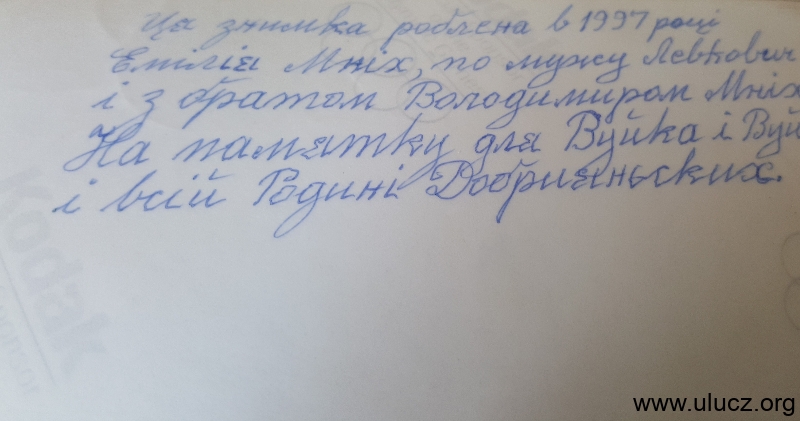 Ця знимка роблена в 1997 році
Емілія Мніх, по мужу Левкович
і з братом Володимиром Мніх
На памятку для Вуйка і Вуй
і всій Родині Добрианьских.
Kodak
www.ulucz.org